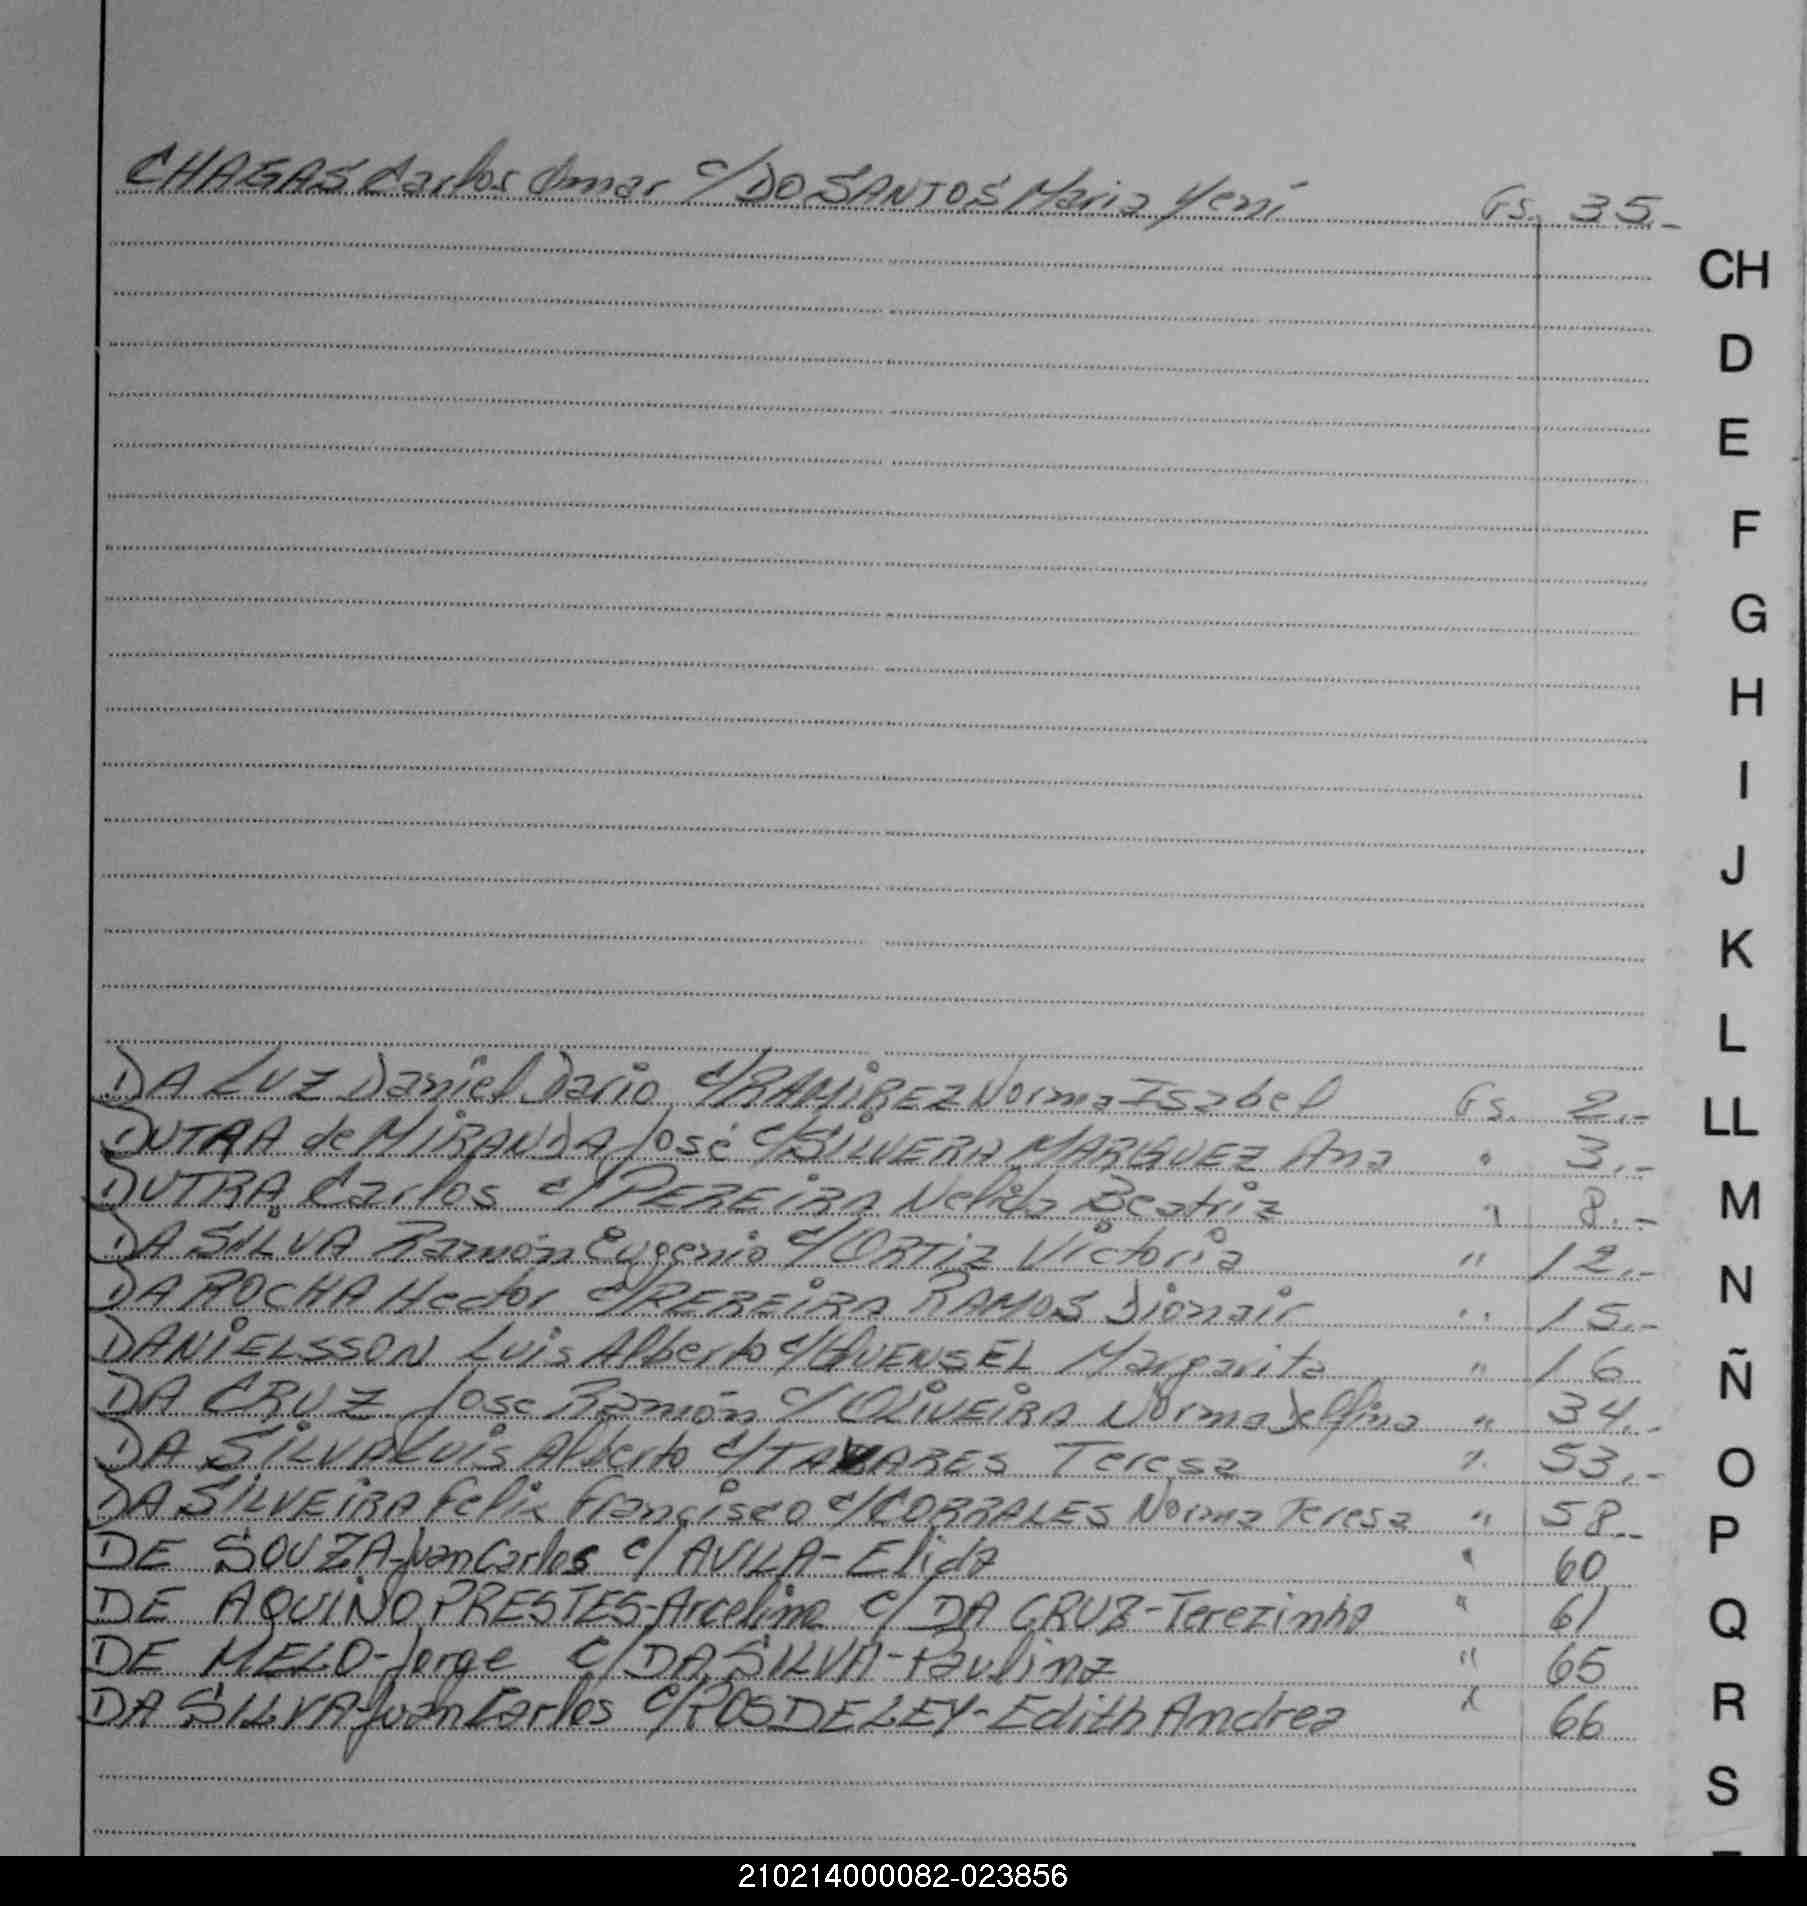 CHAGAS Carlos Omar c/ DO SANTOS Maria Yeni Gs. 35.-
CH
D
E
F
G
H
I
J
K
L
DA LUZ Daniel Dario c/ RAMIREZ Norma Isabel Gs. 2.-
LL
DUTRA de MIRANDA José c/ SILVERA MARQUEZ Ana " 3.-
DUTRA Carlos c/ PEREIRA Nelida Beatriz " 8.-
M
DA SILVA Ramón Eugenio c/ ORTIZ Victoria " 12.-
DA ROCHA Hector c/ PEREIRA RAMOS Dionair " 15.-
N
DANIELSSON Luis Alberto c/ Margarita " 16
Ñ
DA CRUZ Jose Ramón c/ OLIVEIRA Norma Delfina " 34.-
DA SILVA Luis Alberto c/ TAVARES Teresa " 53.-
O
DA SILVEIRA Felix Francisco c/ CORRALES Norma Teresa " 58.-
P
DE SOUZA-Juan Carlos c/ AVILA-Elida " 60
DE AQUINO PRESTES-Arcelino c/ DA CRUZ-Terezinha " 61
Q
DE MELO-Jorge c/ DA SILVA-Paulina " 65
DA SILVA-Juan Carlos c/ ROSDELEY-Edith Andrea " 66
R
S
210214000082-023856